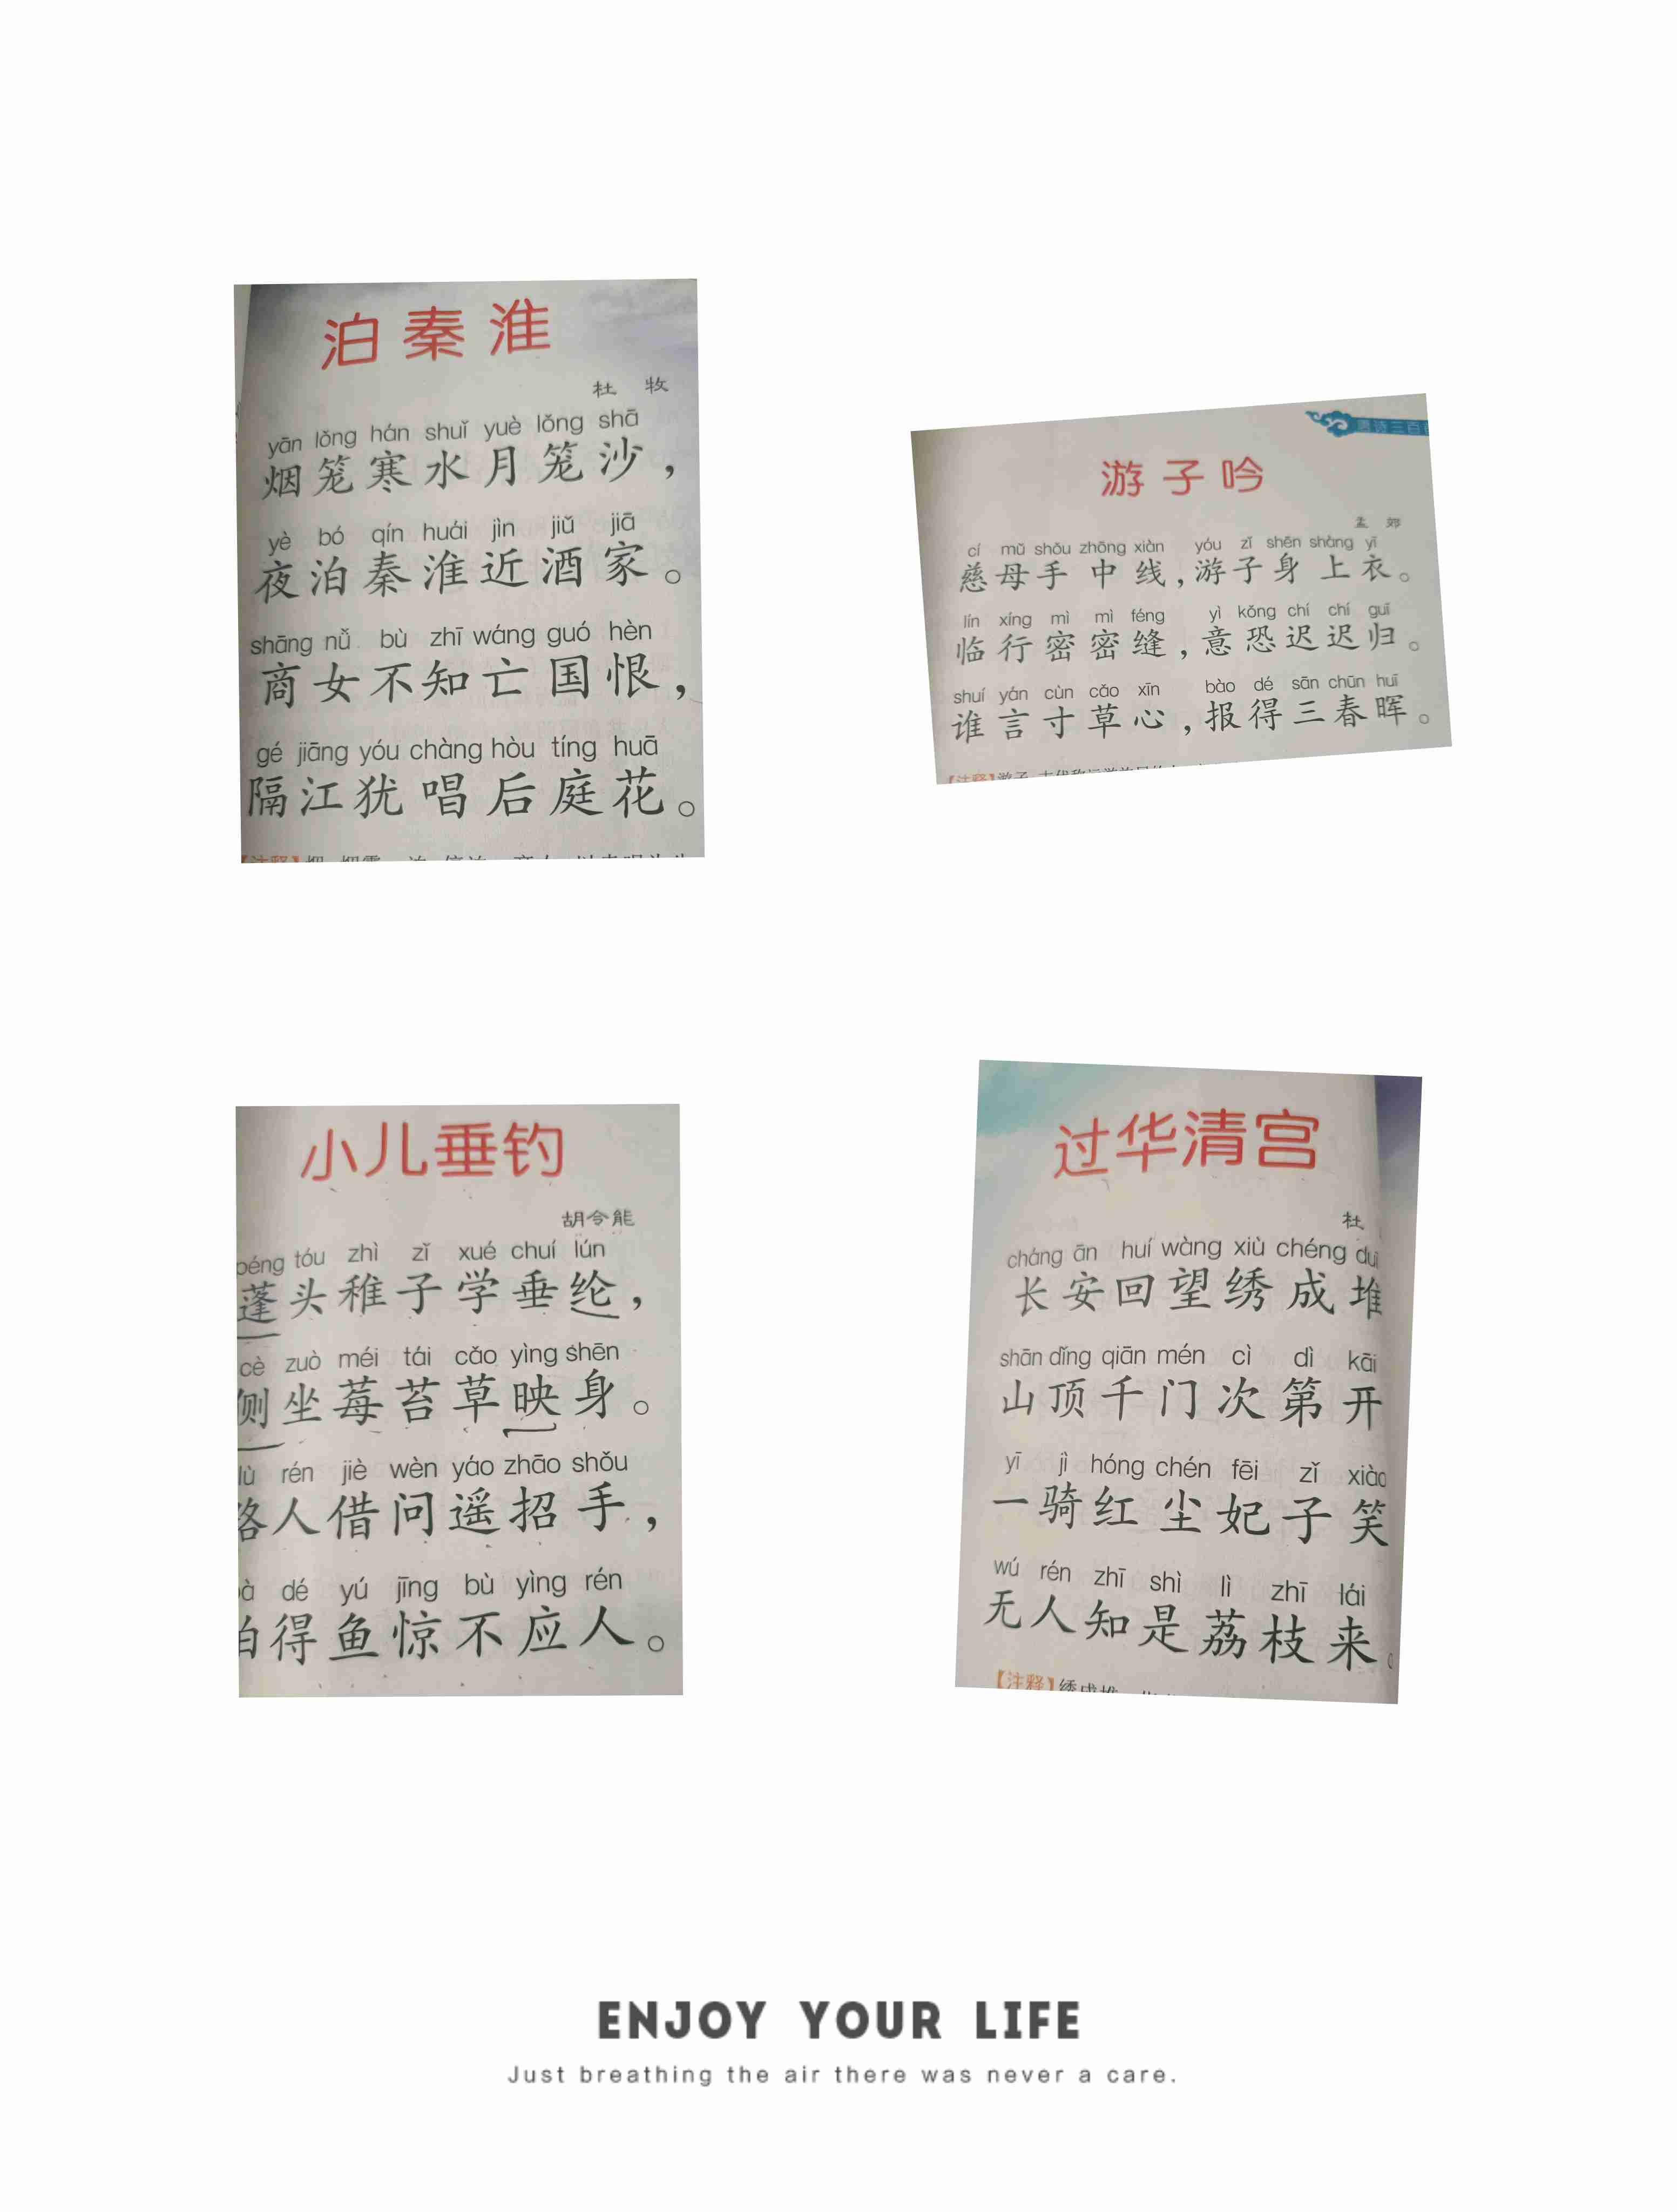 泊秦淮
杜 牧
yān lǒng hán shuǐ yuè lǒng shā
烟笼寒水月笼沙，
yè bó qín huái jìn jiǔ jiā
夜泊秦淮近酒家。
shāng nǚ bù zhī wáng guó hèn
商女不知亡国恨，
gé jiāng yóu chàng hòu tíng huā
隔江犹唱后庭花。
【注释】
唐诗三百
游子吟
孟 郊
cí mǔ shǒu zhōng xiàn yóu zǐ shēn shàng yī
慈母手中线，游子身上衣。
lín xíng mì mì féng yì kǒng chí chí guī
临行密密缝，意恐迟迟归。
shuí yán cùn cǎo xīn bào dé sān chūn huī
谁言寸草心，报得三春晖。
【注释】游子
小儿垂钓
胡令能
péng tóu zhì zǐ xué chuí lún
蓬头稚子学垂纶，
cè zuò méi tái cǎo yìng shēn
侧坐莓苔草映身。
lù rén jiè wèn yáo zhāo shǒu
路人借问遥招手，
dé yú jīng bù yìng rén
怕得鱼惊不应人。
过华清宫
杜
cháng ān huí wàng xiù chéng duī
长安回望绣成堆
shān dǐng qiān mén cì dì kāi
山顶千门次第开
yī jì hóng chén fēi zǐ xiào
一骑红尘妃子笑
wú rén zhī shì lì zhī lái
无人知是荔枝来。
【注释】绣成堆
ENJOY YOUR LIFE
Just breathing the air there was never a care.